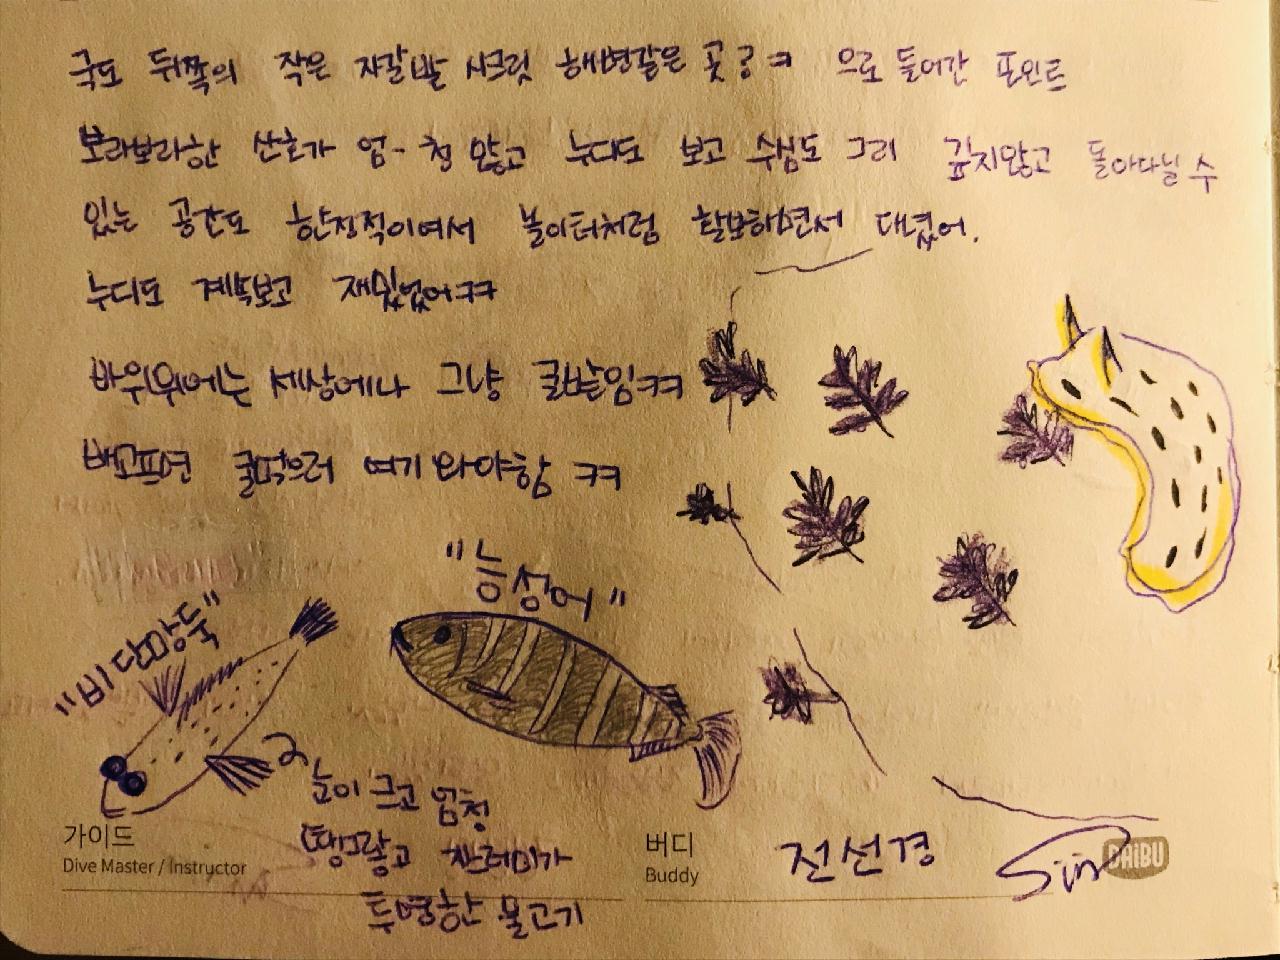 국도 뒤쪽의 작은 자갈밭 시크릿 해변같은 곳?ㅋ 으로 들어간 포인트
보라보라한 산호가 엄-청 많고 누디도 보고 수심도 그리 깊지않고 돌아다닐 수
있는 공간도 한정적이여서 놀이터처럼 활보하면서 대녔어.
누디도 계속보고 재밌었어ㅋㅋ
바위위에는 세상에나 그냥 굴밭임ㅋㅋ
배고프면 굴먹으러 여기 와야함 ㅋㅋ
"능성어"
"비단망둑"
눈이 크고 엄청
땡그랗고 지느러미가
투명한 물고기
가이드
Dive Master / Instructor
버디
Buddy
전선경
DAIBU